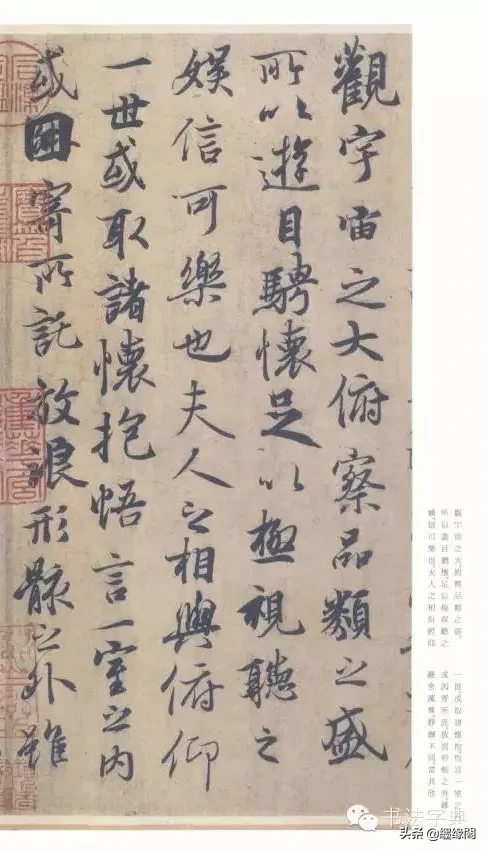 觀宇宙之大俯察品類之盛
所以遊目騁懷足以極視聽之
娛信可樂也夫人之相與俯仰
一世或取諸懷抱悟言一室之內
或因寄所託放浪形骸之外雖
觀宇宙之大，俯察品類之盛，
所以遊目騁懷，足以極視聽之
娛，信可樂也。夫人之相與，俯仰
一世，或取諸懷抱，悟言一室之內，
或因寄所託，放浪形骸之外。雖
趣舍萬殊，靜躁不同，當其欣
书法字典
头条 @缠缘阁